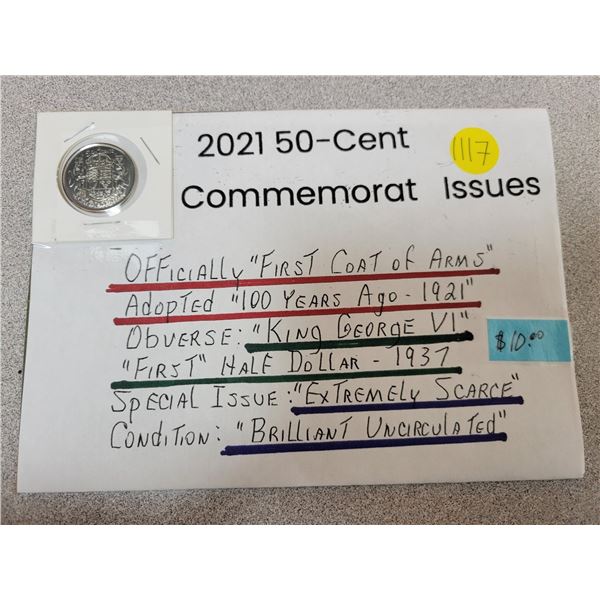 2021 50-Cent
1117
Commemorat Issues
Officially "First Coat of Arms"
Adopted "100 Years Ago - 1921"
Obverse: "King George VI"
$10.00
"First" Half Dollar - 1937
Special Issue: "Extremely Scarce"
Condition: "Brilliant Uncirculated"